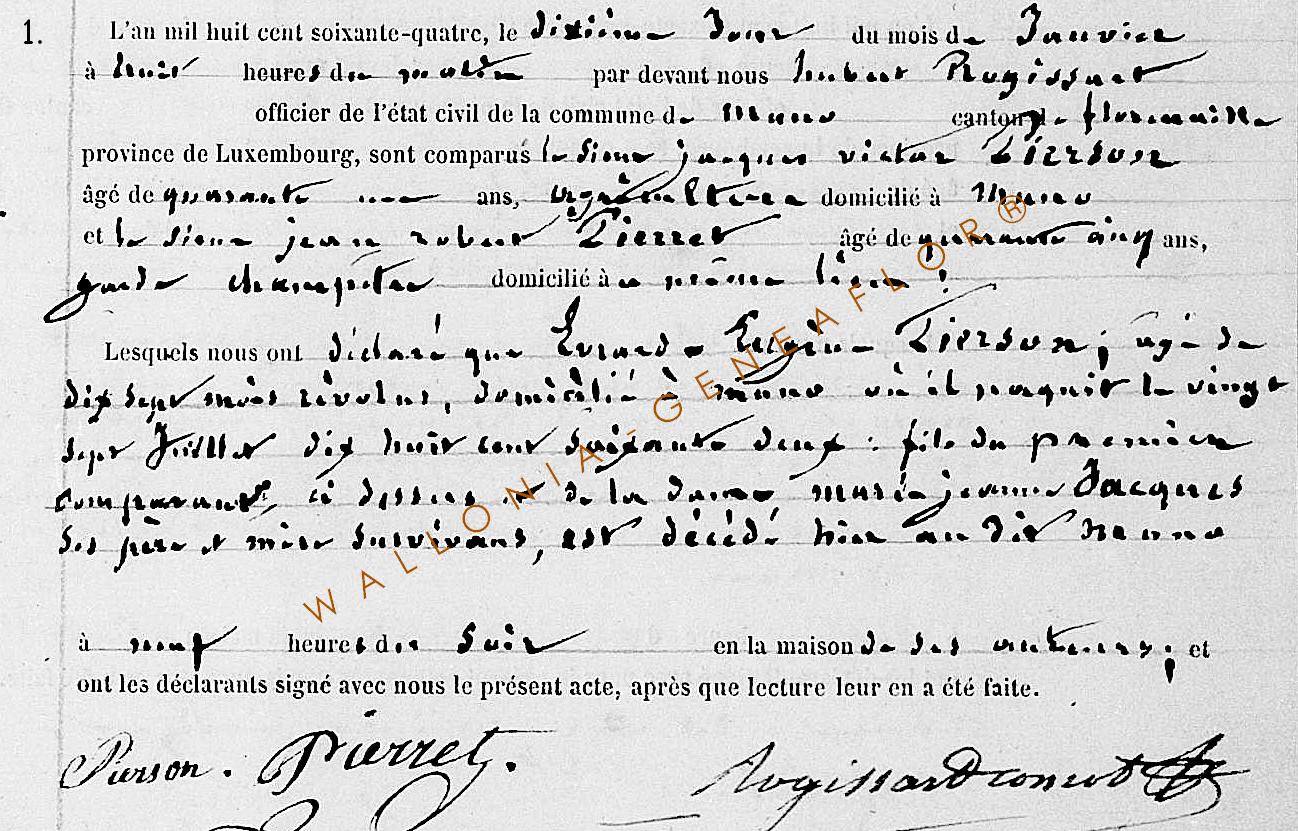 1. L'an mil huit cent soixante-quatre, le dixième Jour du mois de Janvier
à huit heures du matin par devant nous hubert Rogissart
officier de l'état civil de la commune de muno canton de florenville
province de Luxembourg, sont comparus le sieur jacques victor Pierson
âgé de quarante ans, agriculteur domicilié à Muno
et le sieur jean robert Pierret âgé de quarante cinq ans,
garde champêtre domicilié à u même lieu ;
Lesquels nous ont déclaré que Evrard Eugène Pierson ; âgé de
dix sept mois révolus, domicilié à muno où il naquit le vingt
sept Juillet dix huit cent soixante deux : fils du premier
comparant, ci dessus et de la dame marie jeanne Jacques
ses père et mère survivans, est décédé hier au dit muno
à neuf heures du soir en la maison de ses auteurs ; et
ont les déclarants signé avec nous le présent acte, après que lecture leur en a été faite.
Pierson . Pierret . Rogissart
WALLONIA-GENEAFLOR®